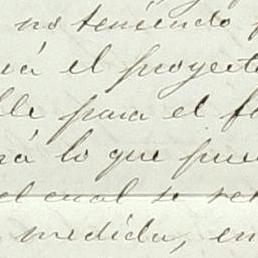 no teniendo
rá el proyecto
ble para el
rá lo que pue
el cual se re
medida, en